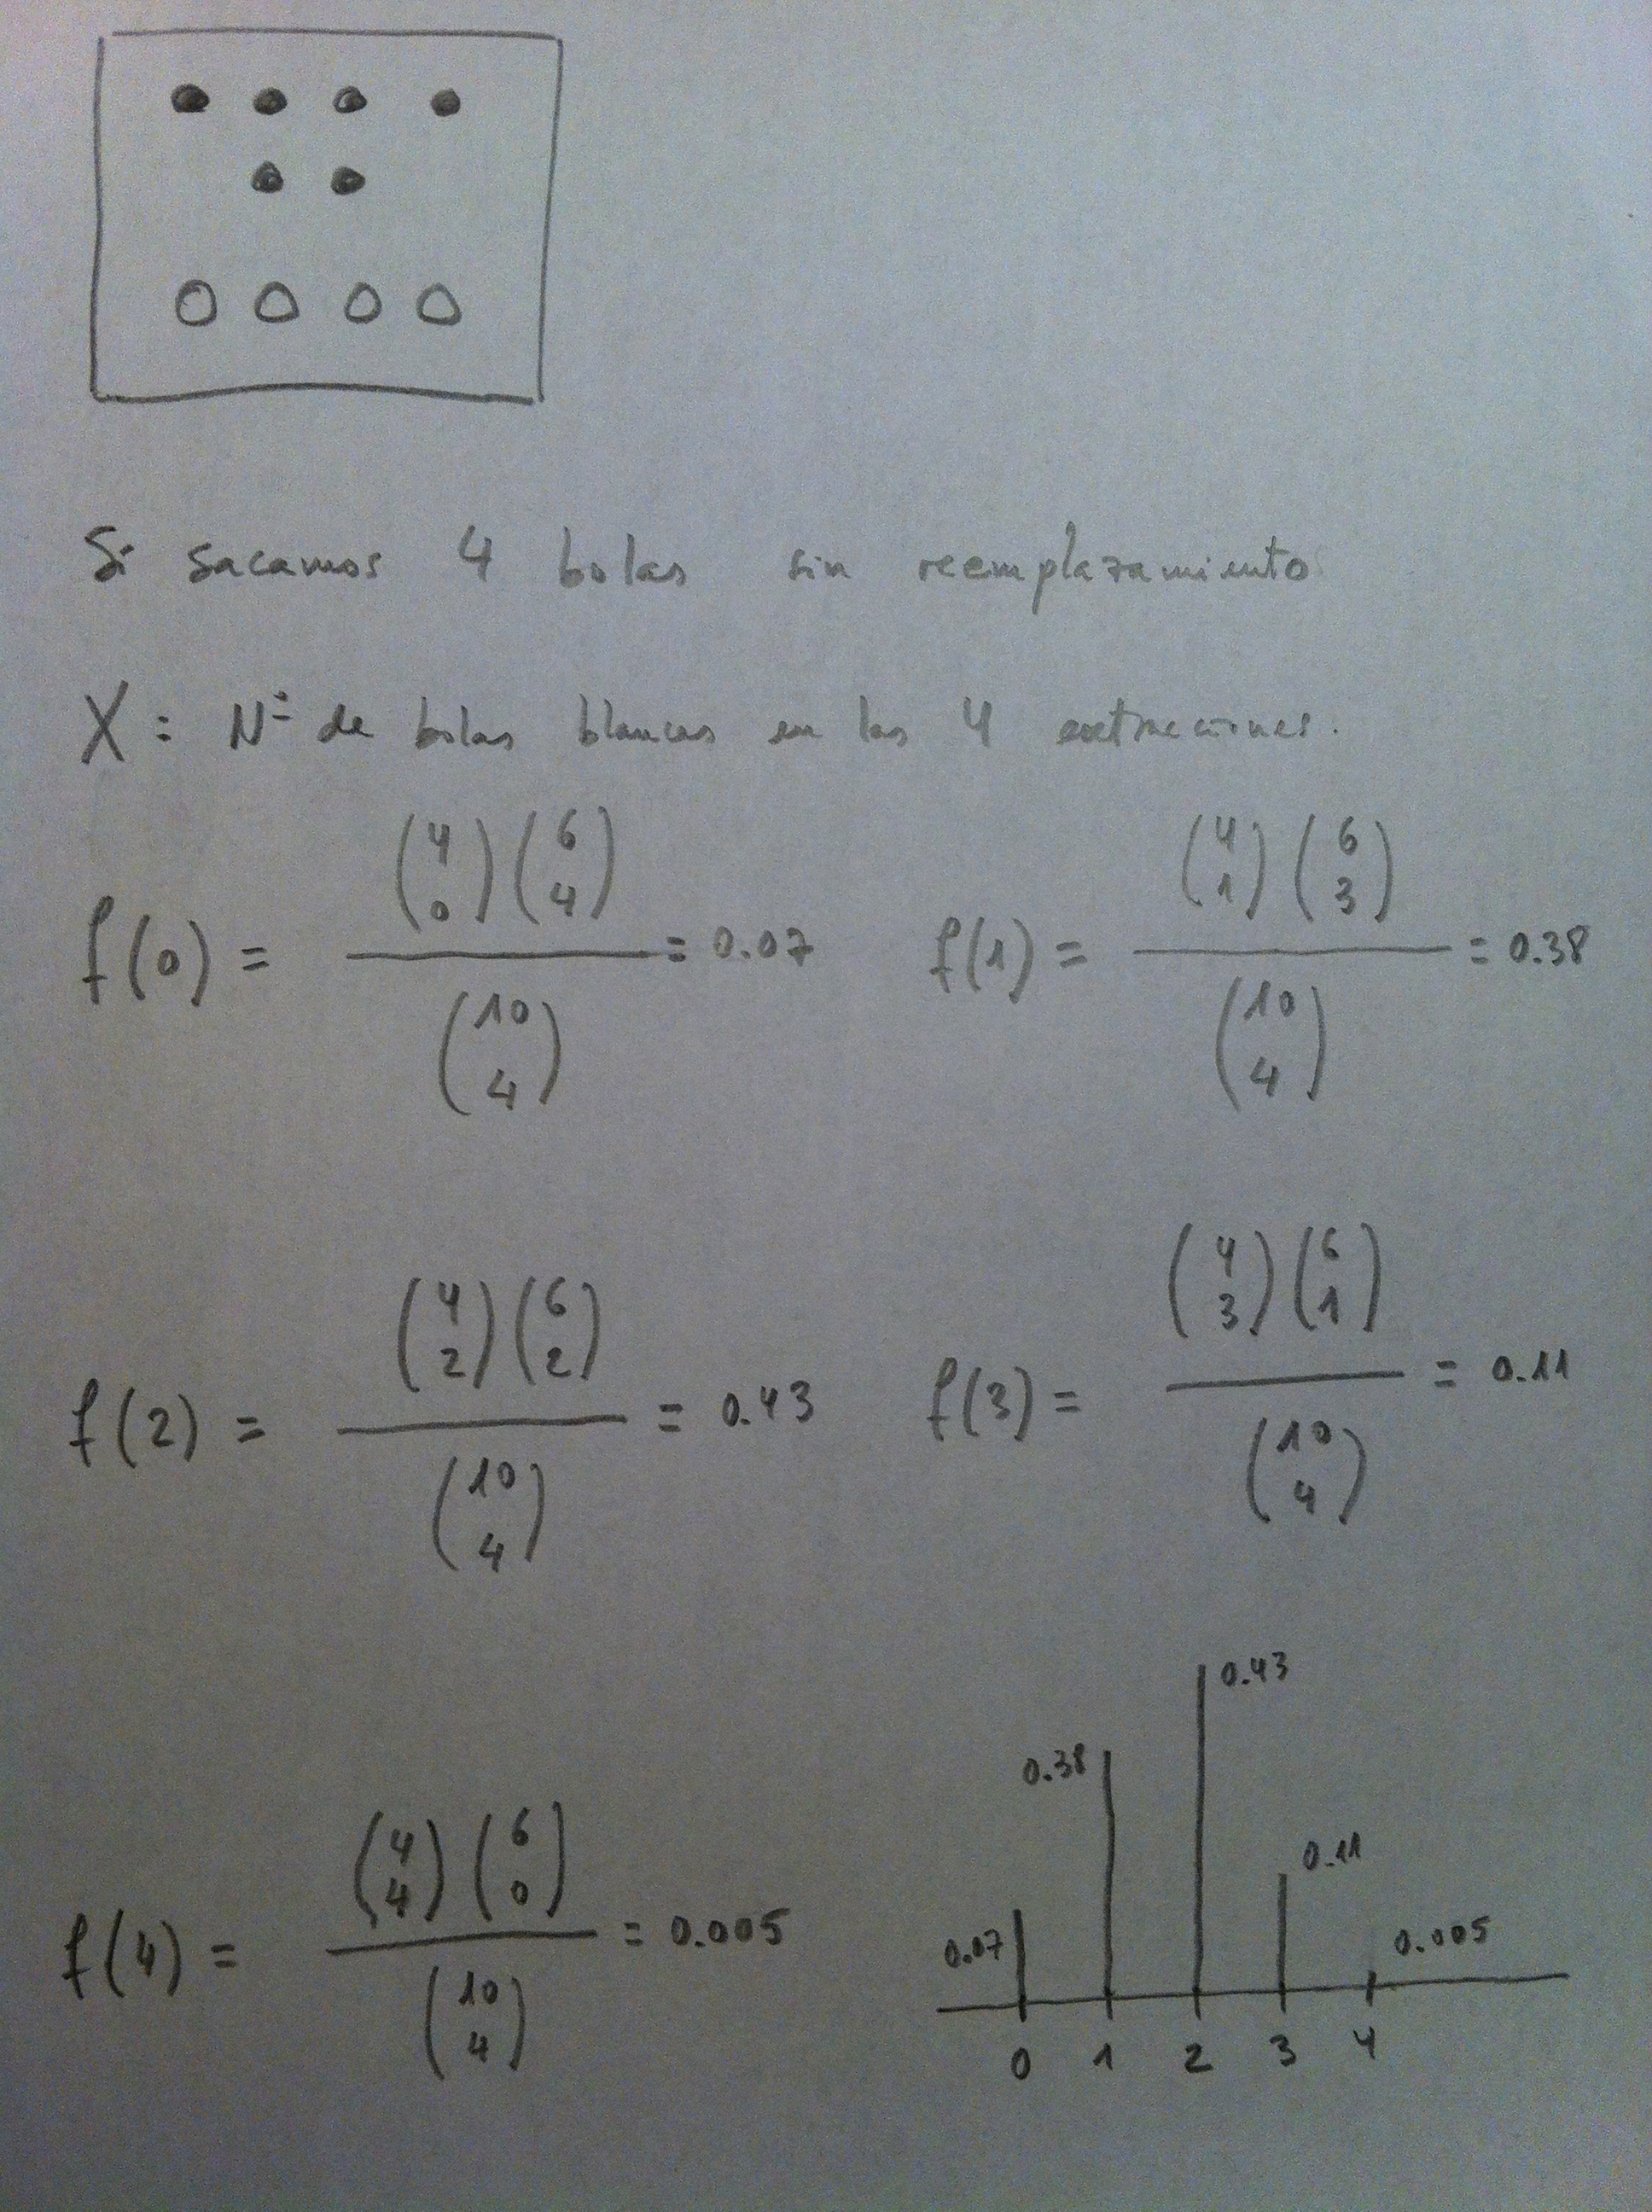 Si sacamos 4 bolas sin reemplazamiento
X = Nº de bolas blancas en las 4 extracciones.
f(0) = \frac{\binom{4}{0}\binom{6}{4}}{\binom{10}{4}} = 0.07
f(1) = \frac{\binom{4}{1}\binom{6}{3}}{\binom{10}{4}} = 0.38
f(2) = \frac{\binom{4}{2}\binom{6}{2}}{\binom{10}{4}} = 0.43
f(3) = \frac{\binom{4}{3}\binom{6}{1}}{\binom{10}{4}} = 0.11
f(4) = \frac{\binom{4}{4}\binom{6}{0}}{\binom{10}{4}} = 0.005
0.43
0.38
0.11
0.07
0.005
0 1 2 3 4